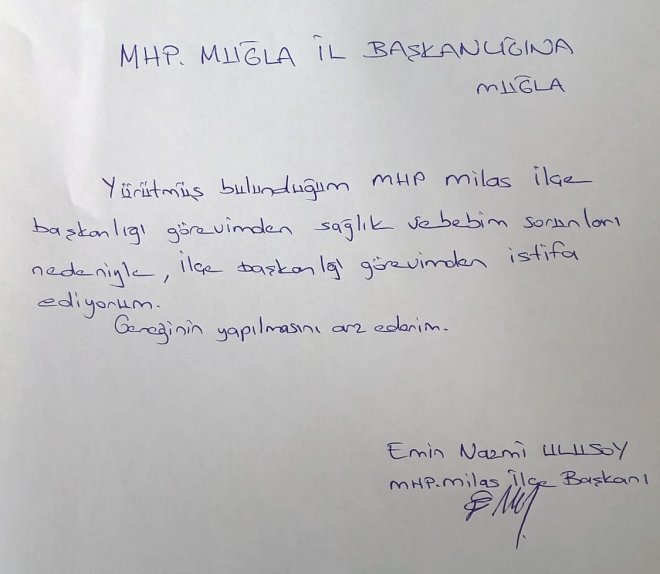 MHP. MUĞLA İL BAŞKANLIĞINA
MUĞLA
Yürütmüş bulunduğum MHP milas ilçe
başkanlığı görevimden sağlık vebebim sorunları
nedeniyle, ilçe başkanlğı görevimden istifa
ediyorum.
Gereğinin yapılmasını arz ederim.
Emin Nazmi ULUSOY
MHP.milas İlçe Başkanı